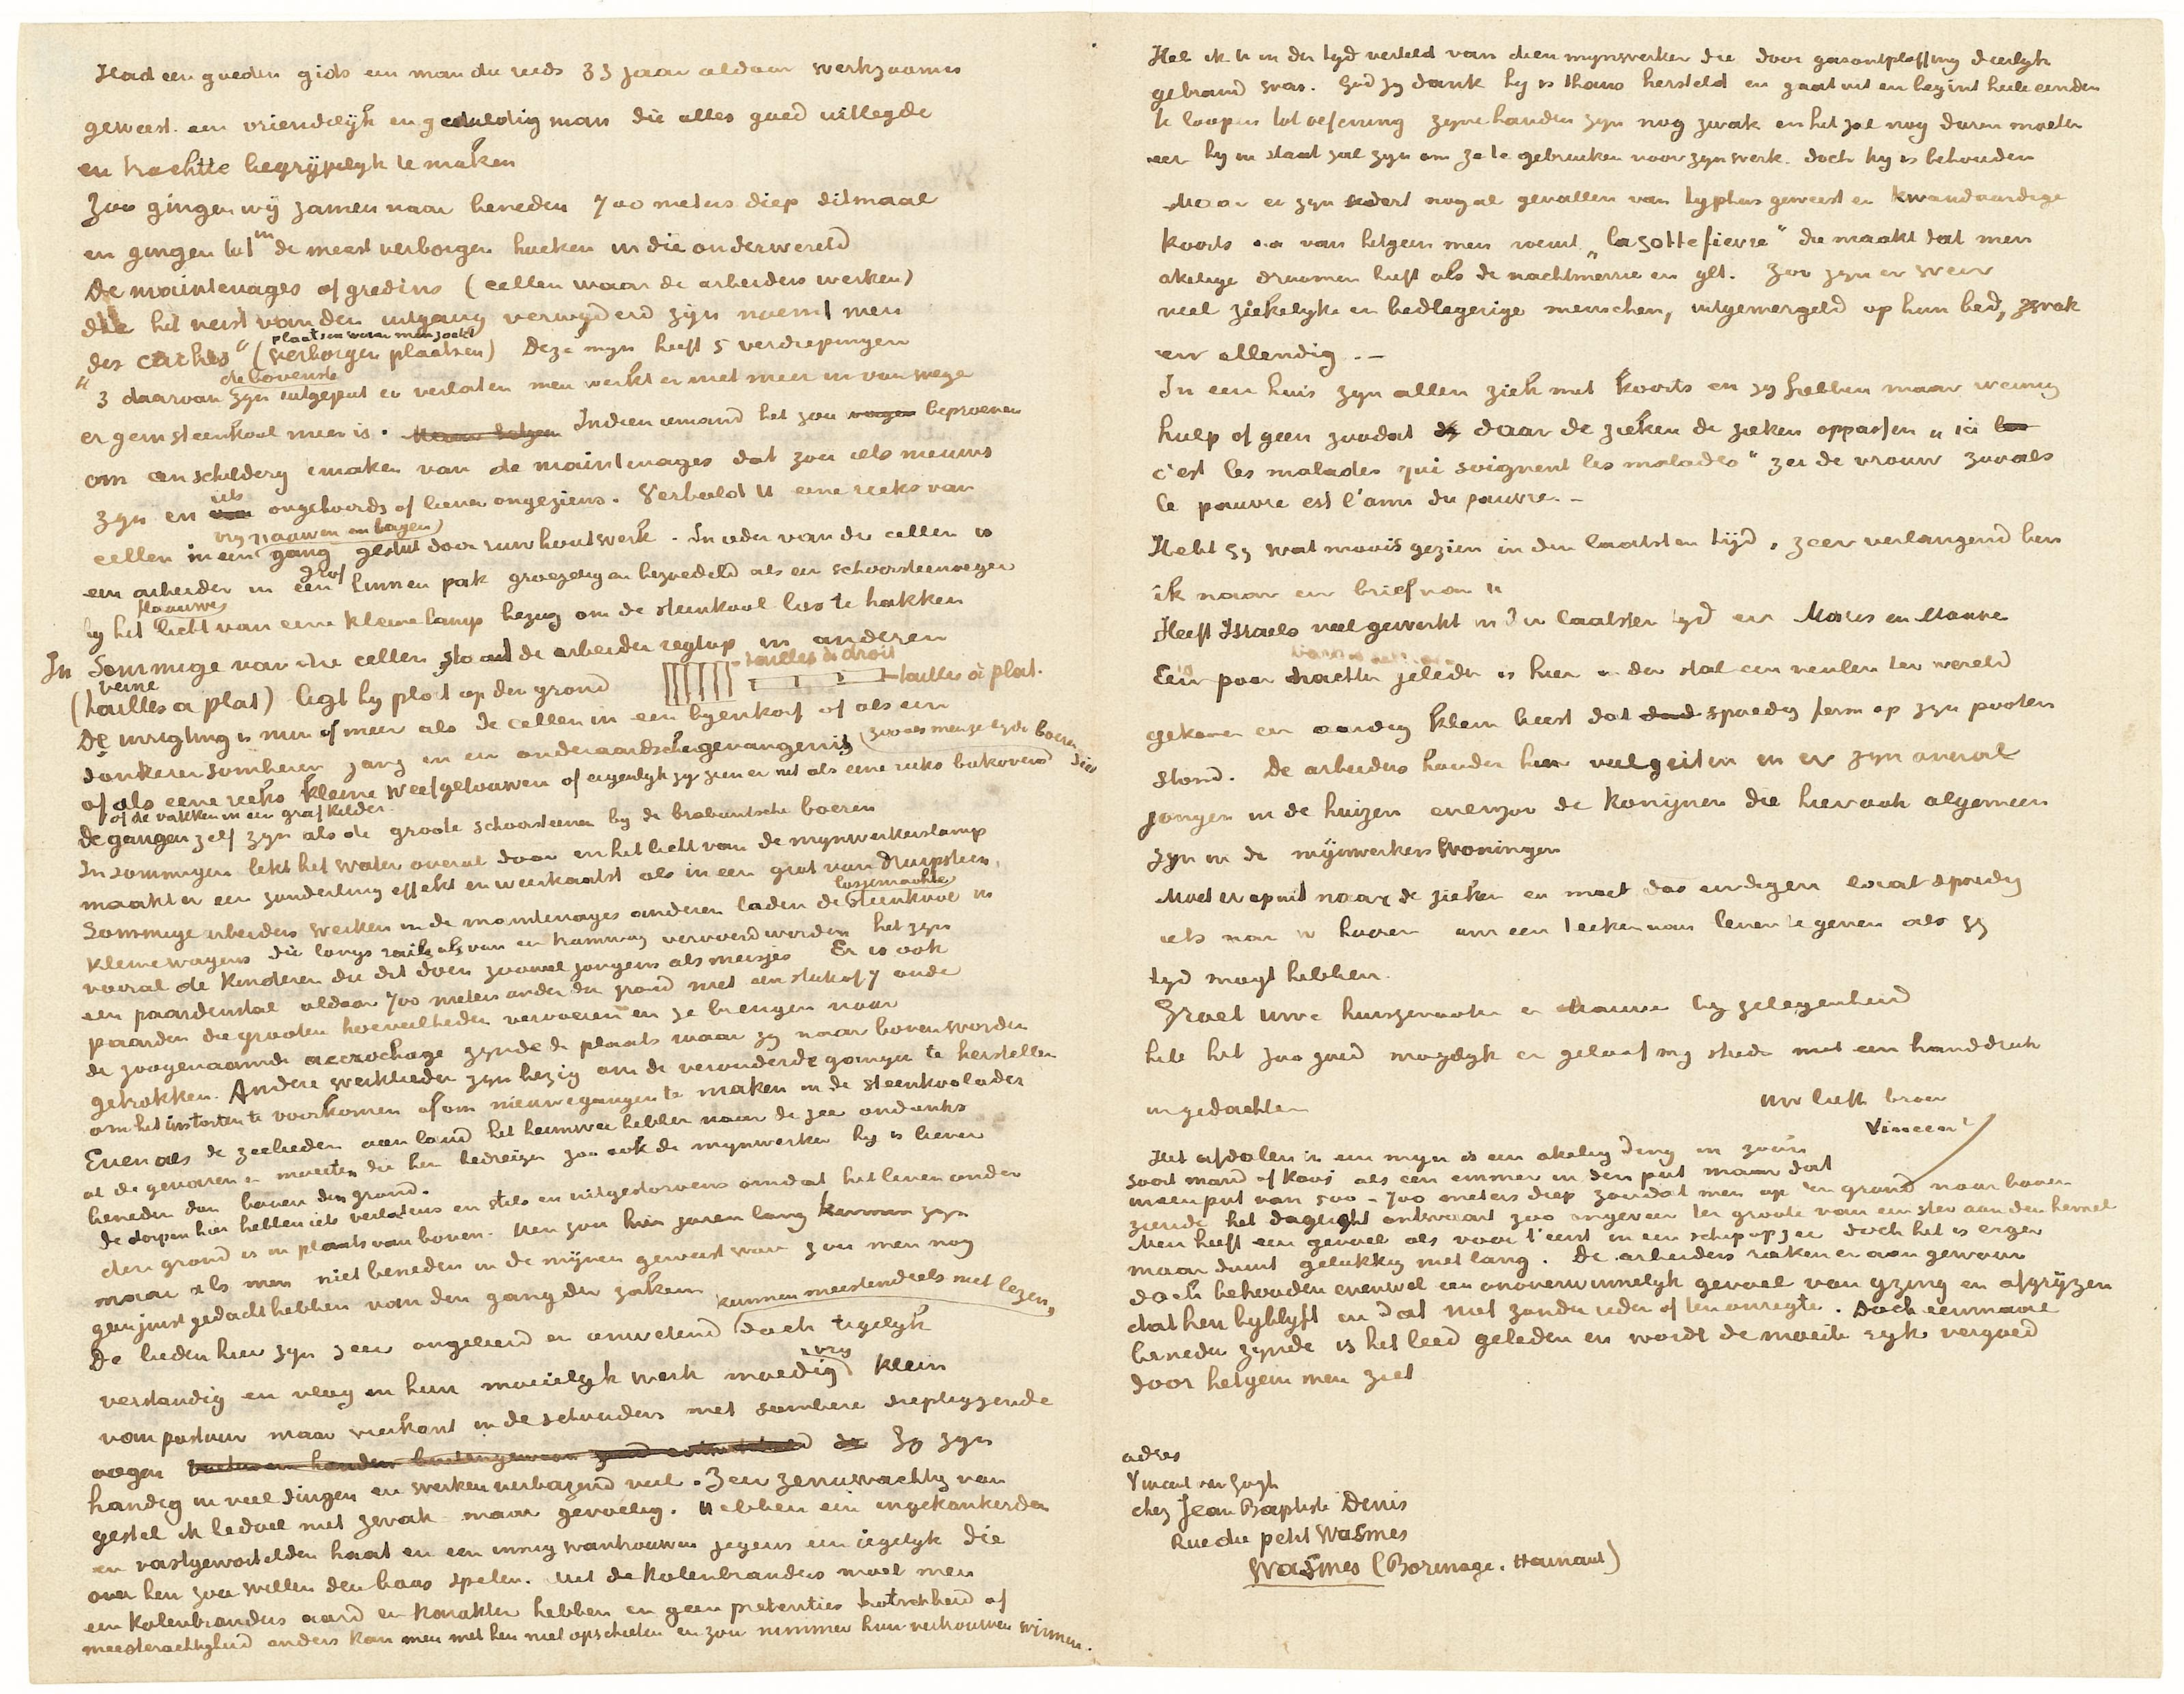 Had een goeden gids een man die reeds 33 jaar aldaar werkzaam is
geweest. een vriendelijk en geduldig man die alles goed uitlegde
en trachtte begrijpelijk te maken
Zoo gingen wij zamen naar beneden 700 meters diep ditmaal
en gingen tot in de meest verborgen hoeken in die onderwereld
De maintenages of gredins (cellen waar de arbeiders werken)
die het verst van den uitgang verwijderd zijn noemt men
plaatsen waar men zoekt
„des caches" (verborgen plaatsen) Deze mijn heeft 5 verdiepingen
de bovenste
3 daarvan zijn uitgeput en verlaten men werkt er niet meer in van wege
er geen steenkool meer is. Indien iemand het zou wagen beproeven
om een schilderij te maken van de maintenages dat zou iets nieuws
zijn en iets ongehoords of liever ongeziens. Verbeeld U eene reeks van
vrij naauwen en lagen
cellen in een gang gestut door ruw houtwerk. In ieder van die cellen is
een arbeider in een grof linnen pak groezelig en bezoedeld als een schoorsteenveger
flaauwe
bij het licht van eene kleine lamp bezig om de steenkool los te hakken
In Sommige van die cellen staat de arbeider regtop in anderen
tailles à droit
(veine tailles a plat) ligt hij plat op den grond tailles à plat.
De inrigting is min of meer als de cellen in een bijenkorf of als een
donkeren somberen gang in een onderaardsche gevangenis
of als eene reeks kleine weefgetouwen of eigenlijk zij zien er uit als eene reeks bakovens zooals men ze bij de boeren ziet
of de vakken in een grafkelder.
De gangen zelf zijn als de groote schoorsteenen bij de brabantsche boeren
In sommigen lekt het water overal door en het licht van de mijnwerkerslamp
maakt er een zonderling effekt en weerkaatst als in een grot van druipsteen.
Sommige arbeiders werken in de maintenages anderen laden de losgemaakte steenkool in
kleine wagens die langs rails als van een tramway vervoerd worden het zijn
vooral de kinderen die dit doen zoowel jongens als meisjes Er is ook
een paardenstal aldaar 700 meters onder den grond met een stuk of 7 oude
paarden die grooten hoeveelheden vervoeren en ze brengen naar
de zoogenaamde accrochage zijnde de plaats waar zij naar boven worden
getrokken. Andere werklieden zijn bezig om de verouderde gangen te herstellen
om het instorten te voorkomen of om nieuwe gangen te maken in de steenkoolader
Even als de zeelieden aan land het heimwee hebben naar de zee ondanks
al de gevaren en moeiten die hen bedreigen zoo ook de mijnwerker hij is liever
beneden dan boven den grond.
De dorpen hier hebben iets verlatens en stils en uitgestorvens omdat het leven onder
den grond is in plaats van boven. Men zou hier jaren lang kunnen zijn
maar als men niet beneden in de mijnen geweest was zou men nog
geen juist gedacht hebben van den gang der zaken
De lieden hier zijn zeer ongeleerd en onwetend kunnen meestendeels niet lezen, doch tegelijk
verstandig en vlug in hun moeielijk werk moedig vrij klein
van postuur maar vierkant in de schouders met sombere diepliggende
oogen Zij zijn
handig in veel dingen en werken verbazend veel. Zeer zenuwachtig van
gestel ik bedoel niet zwak maar gevoelig. Hebben een ingekankerden
en vastgewortelden haat en een innig wantrouwen jegens een iegelijk die
over hen zou willen den baas spelen. Met de kolenbranders moet men
een kolenbranders aard en karakter hebben en geen pretenties trotschheid of
meesterachtigheid anders kan men met hen niet opschieten en zou nimmer hun vertrouwen winnen.
Heb ik U in der tijd verteld van dien mijnwerker die door gasontploffing deerlijk
gebrand was. God zij dank hij is thans hersteld en gaat uit en begint heele einden
te loopen tot oefening zijne handen zijn nog zwak en het zal nog duren moeten
eer hij in staat zal zijn om ze te gebruiken voor zijn werk. doch hij is behouden
Maar er zijn sedert nogal gevallen van typhus geweest en kwaadaardige
koorts o.a van hetgeen men noemt „la sotte fievre" die maakt dat men
akelige droomen heeft als de nachtmerrie en ijlt. Zoo zijn er weer
veel ziekelijke en bedlegerige menschen, uitgemergeld op hun bed, zwak
en ellendig. –
In een huis zijn allen ziek met koorts en zij hebben maar weinig
hulp of geen zoodat daar de zieken de zieken oppassen „ici
c'est les malades qui soignent les malades" zei de vrouw zooals
le pauvre est l'ami du pauvre. –
Hebt gij wat moois gezien in den laatsten tijd, zeer verlangend ben
ik naar een brief van U
Heeft Israels veel gewerkt in den laatsten tijd en Maris en Mauve
Een paar nachten geleden is hier in den stal een veulen ter wereld
gekomen een aardig klein beest dat spoedig ferm op zijn pooten
stond. De arbeiders houden hier veel geiten en er zijn overal
jongen in de huizen evenzoo de konijnen die hier ook algemeen
zijn in de mijnwerkers woningen
Moet er op uit naar de zieken en moet dus eindigen laat spoedig
iets van U hooren om een teeken van leven te geven als gij
tijd mogt hebben.
Groet Uwe huisgenooten en Mauve bij gelegenheid
hebt het zoo goed mogelijk en geloof mij steeds met een handdruk
in gedachten
Uw liefh broer
Vincent
Het afdalen in een mijn is een akelig ding in zoo'n
soort mand of kooi als een emmer in den put maar dan
in een put van 500 - 700 meters diep zoodat men op den grond naar boven
ziende het daglicht ontwaart zoo ongeveer ter groote van een ster aan den hemel
Men heeft een gevoel als voor 't eerst in een schip op zee doch het is erger
maar duurt gelukkig niet lang. De arbeiders raken er aan gewoon
doch behouden evenwel een onoverwinnelijk gevoel van yzing en afgrijzen
dat hen bijblijft en dat niet zonder reden of ten onregte. Doch eenmaal
beneden zijnde is het leed geleden en wordt de moeite rijk vergoed
door hetgeen men ziet
adres
Vincent van Gogh
chez Jean Baptiste Denis
Rue du petit Wasmes
Wasmes (Borinage. Hainaut)